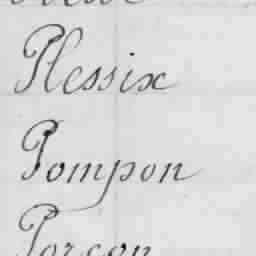 Plessix
Pompon
Porcon